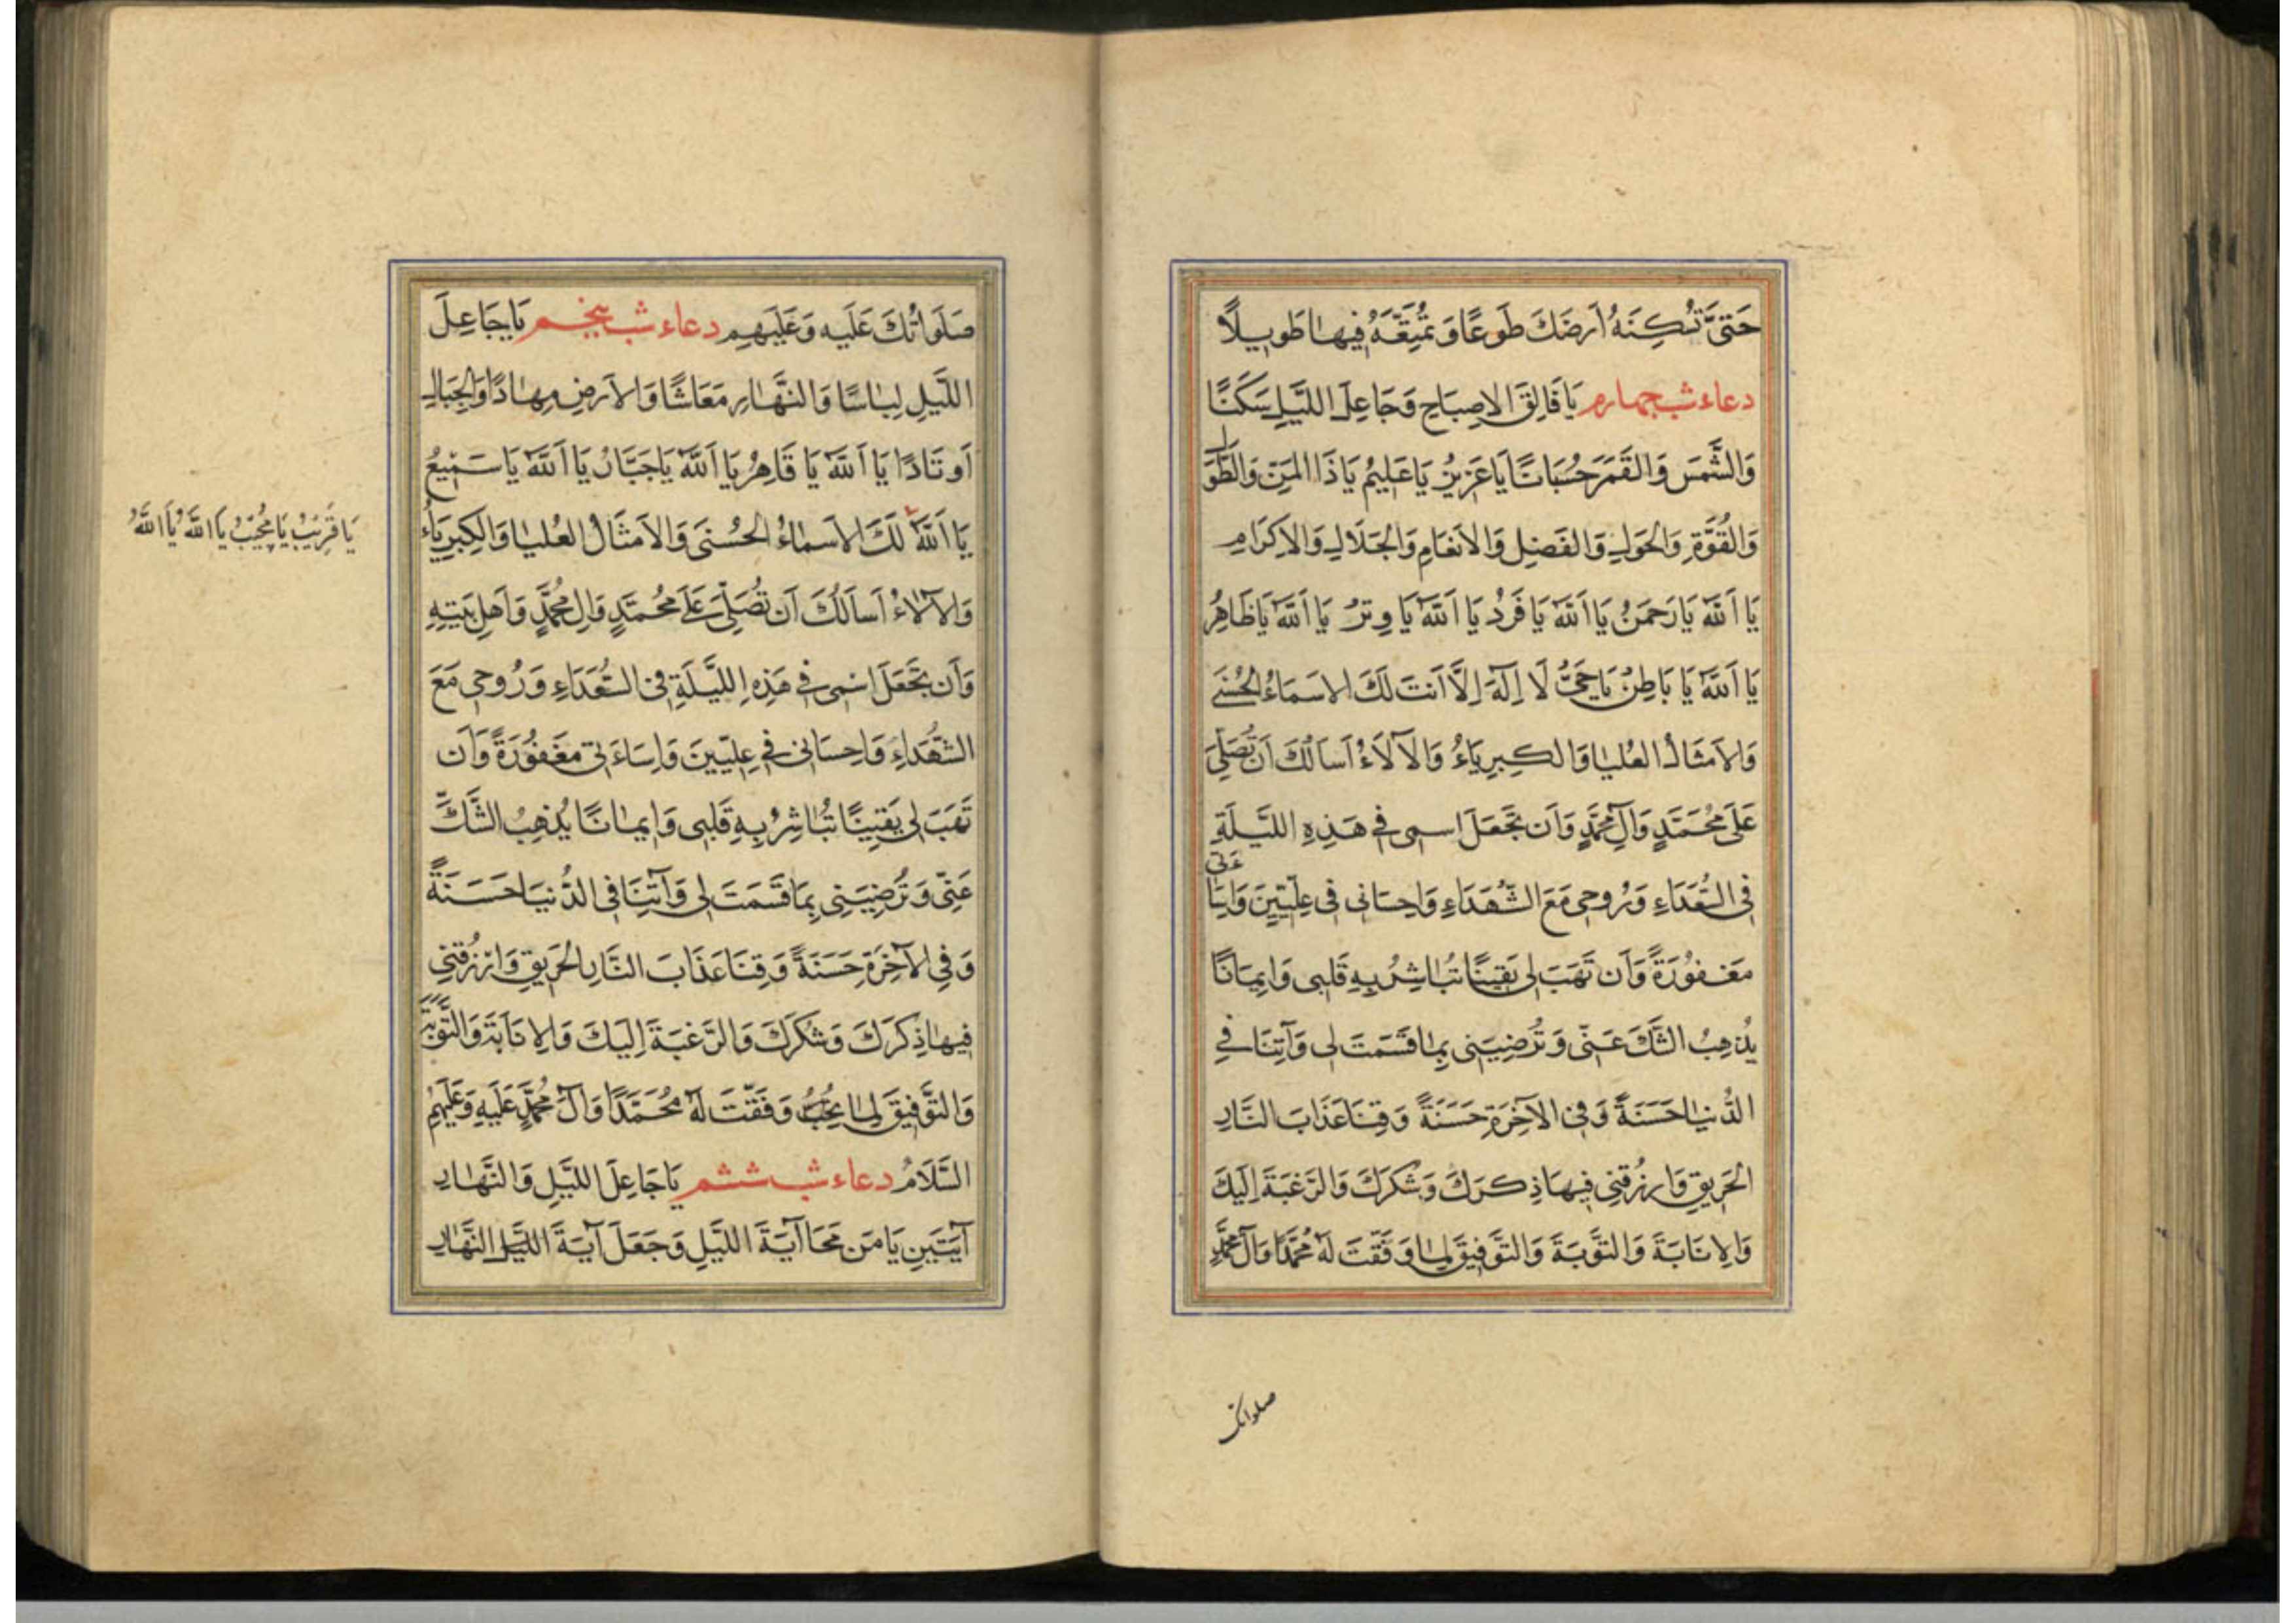 حَتّىٰ تُسْكِنَهُ اَرضَكَ طَوعًا وَ تُمَتِّعَهُ فِيهَا طَوِيلًا
دعاء شب چهارم يَا فَالِقَ الاِصبَاحِ وَجَاعِلَ اللَّيلِ سَكَنًا
وَالشَّمسَ وَالقَمَرَ حُسبَانًا يَا عَزِيزُ يَا عَلِيمُ يَا ذَا المَنِّ وَالطَّولِ
وَالقُوَّةِ وَالحَولِ وَالفَضلِ وَالاَنعَامِ وَالجَلَالِ وَالاِكرَامِ
يَا اَللّٰهُ يَا رَحمَنُ يَا اَللّٰهُ يَا فَردُ يَا اَللّٰهُ يَا وِترُ يَا اَللّٰهُ يَا ظَاهِرُ
يَا اَللّٰهُ يَا بَاطِنُ يَا حَيُّ لَا اِلَهَ اِلَّا اَنتَ لَكَ الاَسمَاءُ الحُسنَى
وَالاَمثَالُ العُليَا وَالكِبرِيَاءُ وَالآلَاءُ اَسأَلُكَ اَن تُصَلِّيَ
عَلَى مُحَمَّدٍ وَآلِ مُحَمَّدٍ وَاَن تَجعَلَ اسمِى فِي هَذِهِ اللَّيلَةِ
فِى السُّعَدَاءِ وَرُوحِى مَعَ الشُّهَدَاءِ وَاِحسَانِى فِى عِلِّيِّينَ وَاِسَاءَتِى
مَغفُورَةً وَاَن تَهَبَ لِى يَقِينًا تُبَاشِرُ بِهِ قَلبِى وَاِيمَانًا
يُذهِبُ الشَّكَّ عَنِّى وَتُرضِيَنِى بِمَا قَسَمتَ لِى وَآتِنَا فِي
الدُّنيَا حَسَنَةً وَفِى الآخِرَةِ حَسَنَةً وَقِنَا عَذَابَ النَّارِ
الحَرِيقِ وَارزُقنِى فِيهَا ذِكرَكَ وَشُكرَكَ وَالرَّغبَةَ اِلَيكَ
وَالاِنَابَةَ وَالتَّوبَةَ وَالتَّوفِيقَ لِمَا وَفَّقتَ لَهُ مُحَمَّدًا وَآلَ مُحَمَّدٍ
صلواتك
صَلَوَاتُكَ عَلَيهِ وَعَلَيهِم دعاء شب پنجم يَا جَاعِلَ
اللَّيلِ لِبَاسًا وَالنَّهَارِ مَعَاشًا وَالاَرضِ مِهَادًا وَالجِبَالِ
اَوتَادًا يَا اَللّٰهُ يَا قَاهِرُ يَا اَللّٰهُ يَا جَبَّارُ يَا اَللّٰهُ يَا سَمِيعُ
يَا اَللّٰهُ لَكَ الاَسمَاءُ الحُسنَى وَالاَمثَالُ العُليَا وَالكِبرِيَاءُ
يَا قَرِيبُ يَا مُجِيبُ يَا اَللّٰهُ يَا اَللّٰهُ
وَالآلَاءُ اَسأَلُكَ اَن تُصَلِّيَ عَلَى مُحَمَّدٍ وَآلِ مُحَمَّدٍ وَاَهلِ بَيتِهِ
وَاَن تَجعَلَ اسمِى فِي هَذِهِ اللَّيلَةِ فِى السُّعَدَاءِ وَرُوحِى مَعَ
الشُّهَدَاءِ وَاِحسَانِى فِي عِلِّيِّينَ وَاِسَاءَتِى مَغفُورَةً وَاَن
تَهَبَ لِى يَقِينًا تُبَاشِرُ بِهِ قَلبِى وَاِيمَانًا يُذهِبُ الشَّكَّ
عَنِّى وَتُرضِيَنِى بِمَا قَسَمتَ لِى وَآتِنَا فِى الدُّنيَا حَسَنَةً
وَفِى الآخِرَةِ حَسَنَةً وَقِنَا عَذَابَ النَّارِ الحَرِيقِ وَارزُقنِى
فِيهَا ذِكرَكَ وَشُكرَكَ وَالرَّغبَةَ اِلَيكَ وَالاِنَابَةَ وَالتَّوبَةَ
وَالتَّوفِيقَ لِمَا تُحِبُّ وَفَّقتَ لَهُ مُحَمَّدًا وَآلَ مُحَمَّدٍ عَلَيهِ وَعَلَيهِمُ
السَّلَامُ دعاء شب ششم يَا جَاعِلَ اللَّيلِ وَالنَّهَارِ
آيَتَينِ يَا مَن مَحَا آيَةَ اللَّيلِ وَجَعَلَ آيَةَ اللَّيلِ النَّهَارِ